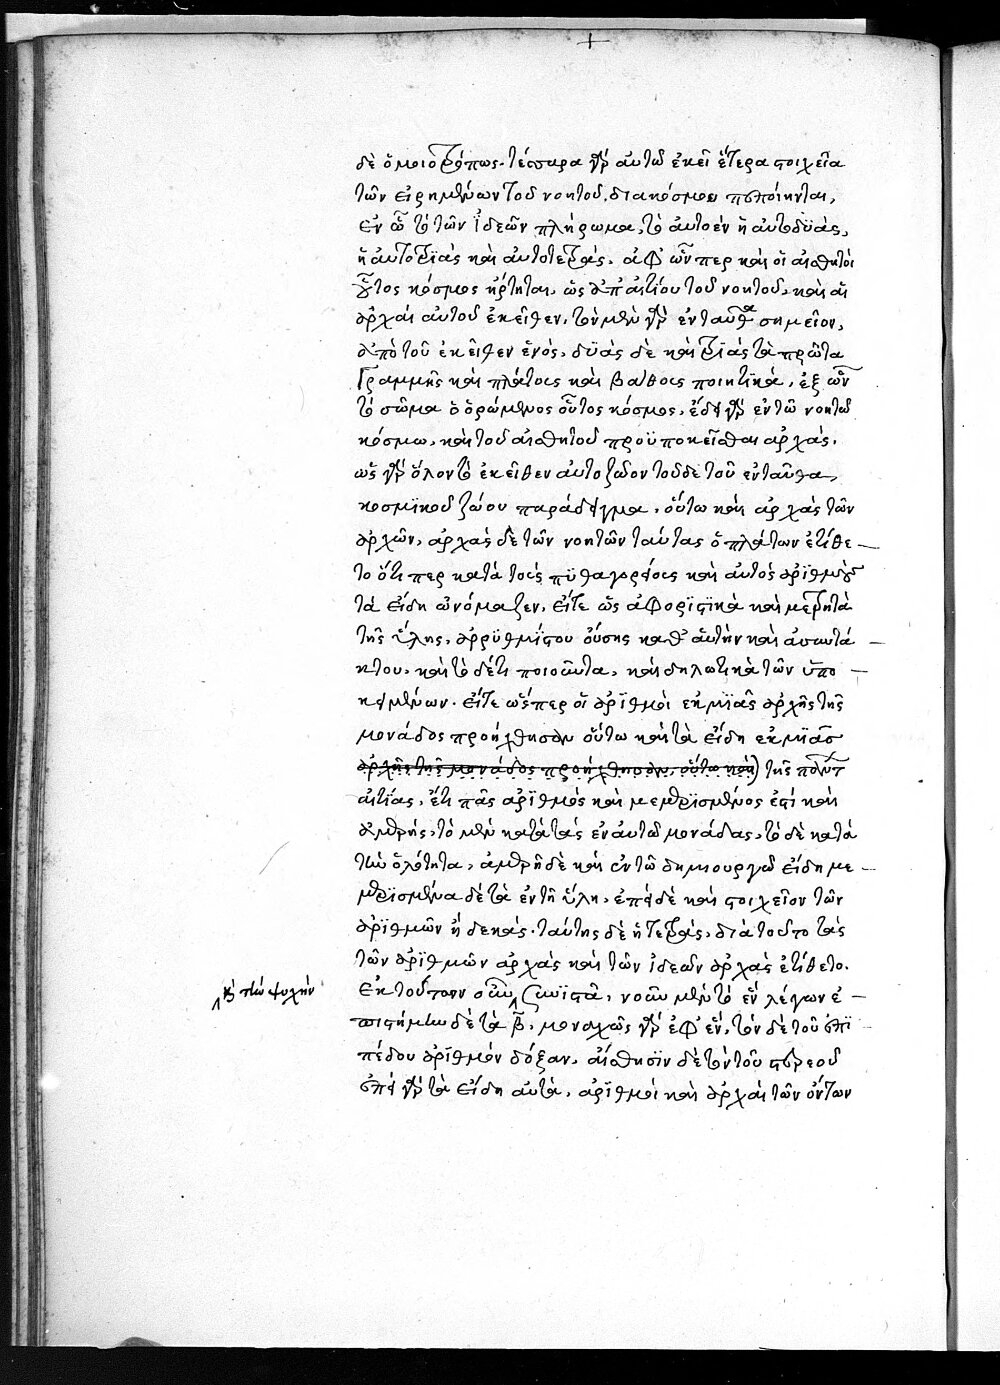 δὲ ὁμοιοτρόπως. τέσσαρα γὰρ αὐτῶ ἐκεῖ ἕτερα στοιχεῖα
τῶν εἰρημένων τοῦ νοητοῦ διακόσμου πεποίηνται,
ἐν ὧ τὸ τῶν ἰδεῶν πλήρωμα, τὸ αὐτοὲν ἢ αὐτοδυὰς,
ἢ αὐτοτριὰς καὶ αὐτοτετρὰς, ἀφ' ὧνπερ καὶ ὁ αἰσθητὸς
οὗτος κόσμος ἤρτηται, ὡς ἀπ' αἰτίου τοῦ νοητοῦ, καὶ αἱ
ἀρχαὶ αὐτοῦ ἐκεῖθεν, τὸ μὲν γὰρ ἐνταῦθα σημεῖον,
ἀπὸ τοῦ ἐκεῖθεν ἑνός, δυὰς δὲ καὶ τριὰς τὰ πρῶτα
γραμμῆς καὶ πλάτους καὶ βάθους ποιητικὰ, ἐξ ὧν
τὸ σῶμα ὁ ὁρώμενος οὗτος κόσμος, ἔδει γὰρ ἐν τῶ νοητῶ
κόσμω, καὶ τοῦ αἰσθητοῦ προϋποκεῖσθαι ἀρχάς.
ὡς γὰρ ὅλον τὸ ἐκεῖθεν αὐτοζῶον τοῦδε τοῦ ἐνταῦθα
κοσμικοῦ ζώου παράδειγμα, οὕτω καὶ ἀρχὰς τῶν
ἀρχῶν, ἀρχὰς δὲ τῶν νοητῶν ταύτας ὁ πλάτων ἐτίθε
το ὅτι περ κατὰ τοὺς πυθαγορείους καὶ αὐτὸς ἀριθμοὺς
τὰ εἴδη ὠνόμαζεν, εἴτε ὡς ἀφοριστικὰ καὶ μετρητὰ
τῆς ὕλης, ἀρρυθμίστου οὔσης καθ' αὑτὴν καὶ ἀτάκ
του, καὶ τὸ δέ τι ποιοῦντα, καὶ δηλωτικὰ τῶν ὑπο
κειμένων. εἴτε ὥσπερ οἱ ἀριθμοὶ ἐκ μιᾶς ἀρχῆς τῆς
μονάδος προήχθησαν οὕτω καὶ τὰ εἴδη ἐκ μιᾶς
ἀρχῆς τῆς μονάδος προήχθησαν, οὕτω καὶ τῆς πάντων
αἰτίας, ἔτι πᾶς ἀριθμὸς καὶ μεμερισμένος ἐστὶ καὶ
ἀμερής, τὸ μὲν κατὰ τὰς ἐν αὐτῶ μονάδας, τὸ δὲ κατὰ
τὴν ὁλότητα, ἀμερῆ δὲ καὶ ἐν τῶ δημιουργῶ εἴδη με
μερισμένα δὲ τὰ ἐν τῆ ὕλη, ἐπεὶ δὲ καὶ στοιχεῖον τῶν
ἀριθμῶν ἡ δεκὰς. ταύτης δὲ ἡ τετρὰς, διὰ τοῦτο τὰς
τῶν ἀριθμῶν ἀρχὰς καὶ τῶν ἰδεῶν ἀρχὰς ἐτίθετο.
καὶ τὴν ψυχὴν
ἐκ τούτων συνιστᾶ, νοῦν μὲν τὸ ἓν λέγων ἐ
πιστήμην δὲ τὰ β̄, μοναχῶς γὰρ ἐφ' ἕν, τὸν δὲ τοῦ ἐπι
πέδου ἀριθμὸν δόξαν, αἴσθησιν δὲ τὸν τοῦ στερεοῦ
ἐπεὶ γὰρ τὰ εἴδη αὐτὰ, ἀριθμοὶ καὶ ἀρχαὶ τῶν ὄντων